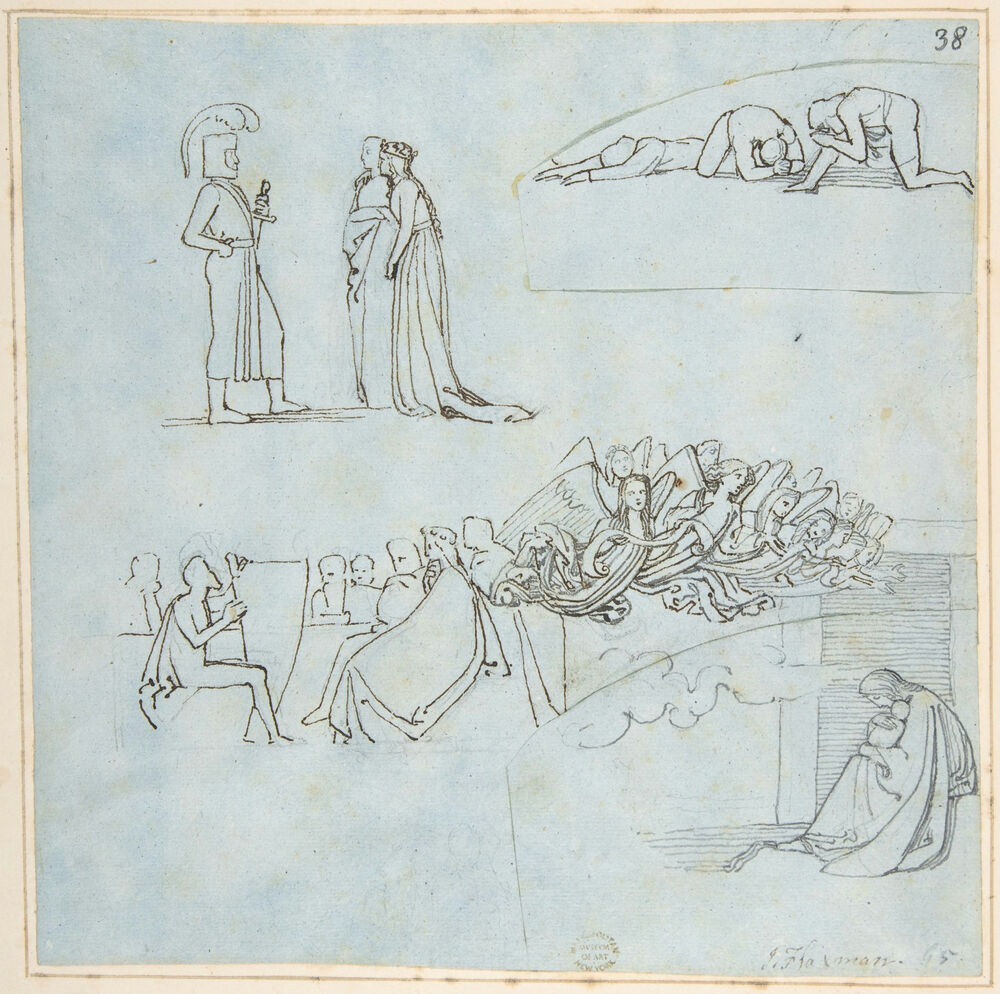 38
METROPOLITAN
MUSEUM
OF ART
NEW YORK
J. Flaxman.